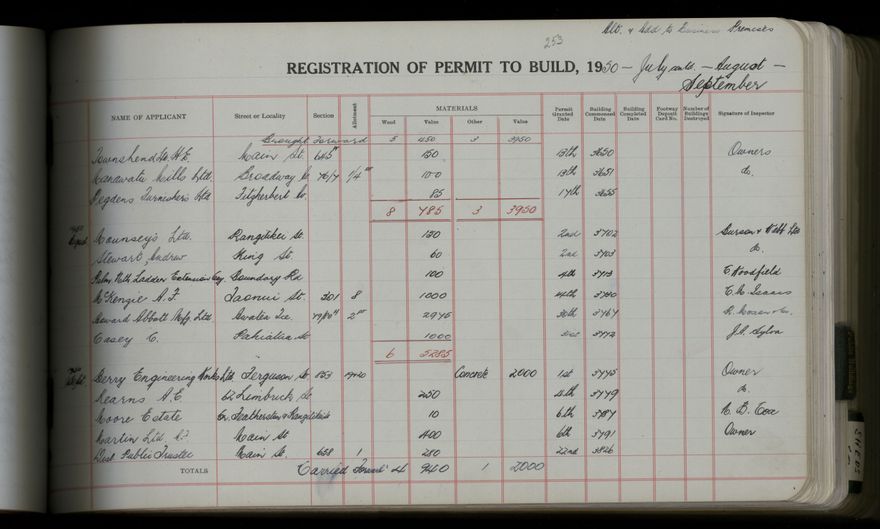 253
Alt. & Add to Business Premises
REGISTRATION OF PERMIT TO BUILD, 1950 - July contd. - August -
September
NAME OF APPLICANT Street or Locality Section Allotment MATERIALS Permit Granted Date Building Commenced Date Building Completed Date Footway Deposit Card No. Number of Buildings Destroyed Signature of Inspector
Wood Value Other Value
Brought Forward 5 450 3 3950
Townshend H.E. Main St. 645 150 13th 3650 Owners
Manawatu Mills Ltd. Broadway 1/4 100 13th 3651 do.
Fitzherbert 85 17th 3655
8 785 3 3950
August
Mounsey's Ltd. Rangitikei St. 130 2nd 3702
Stewart, Andrew King St. 60 2nd 3703 do.
Palm. Nth Ladder Extension Coy. Boundary Rd 100 4th 3713 Woodfield
McKenzie A.F. Taonui St. 301 8 1000 3740
Howard Abbott Mfg Ltd. 2945 30th 3767
Casey C. Pahiatua St. 1000 31st 3772
6 5285
Sept.
Gerry Engineering Works Ltd Ferguson St. 853 Concrete 2000 1st 3775 Owner
Kearns A.E. 62 Lombard St 250 4th 3779 do.
Moore Estate Cr. Featherston & Rangitikei 10 6th 3787
Martin Ltd Main St 400 6th 3791 Owner
Public Trustee Main St. 658 1 280 22nd 3826
TOTALS Carried Forward 4 940 1 2000